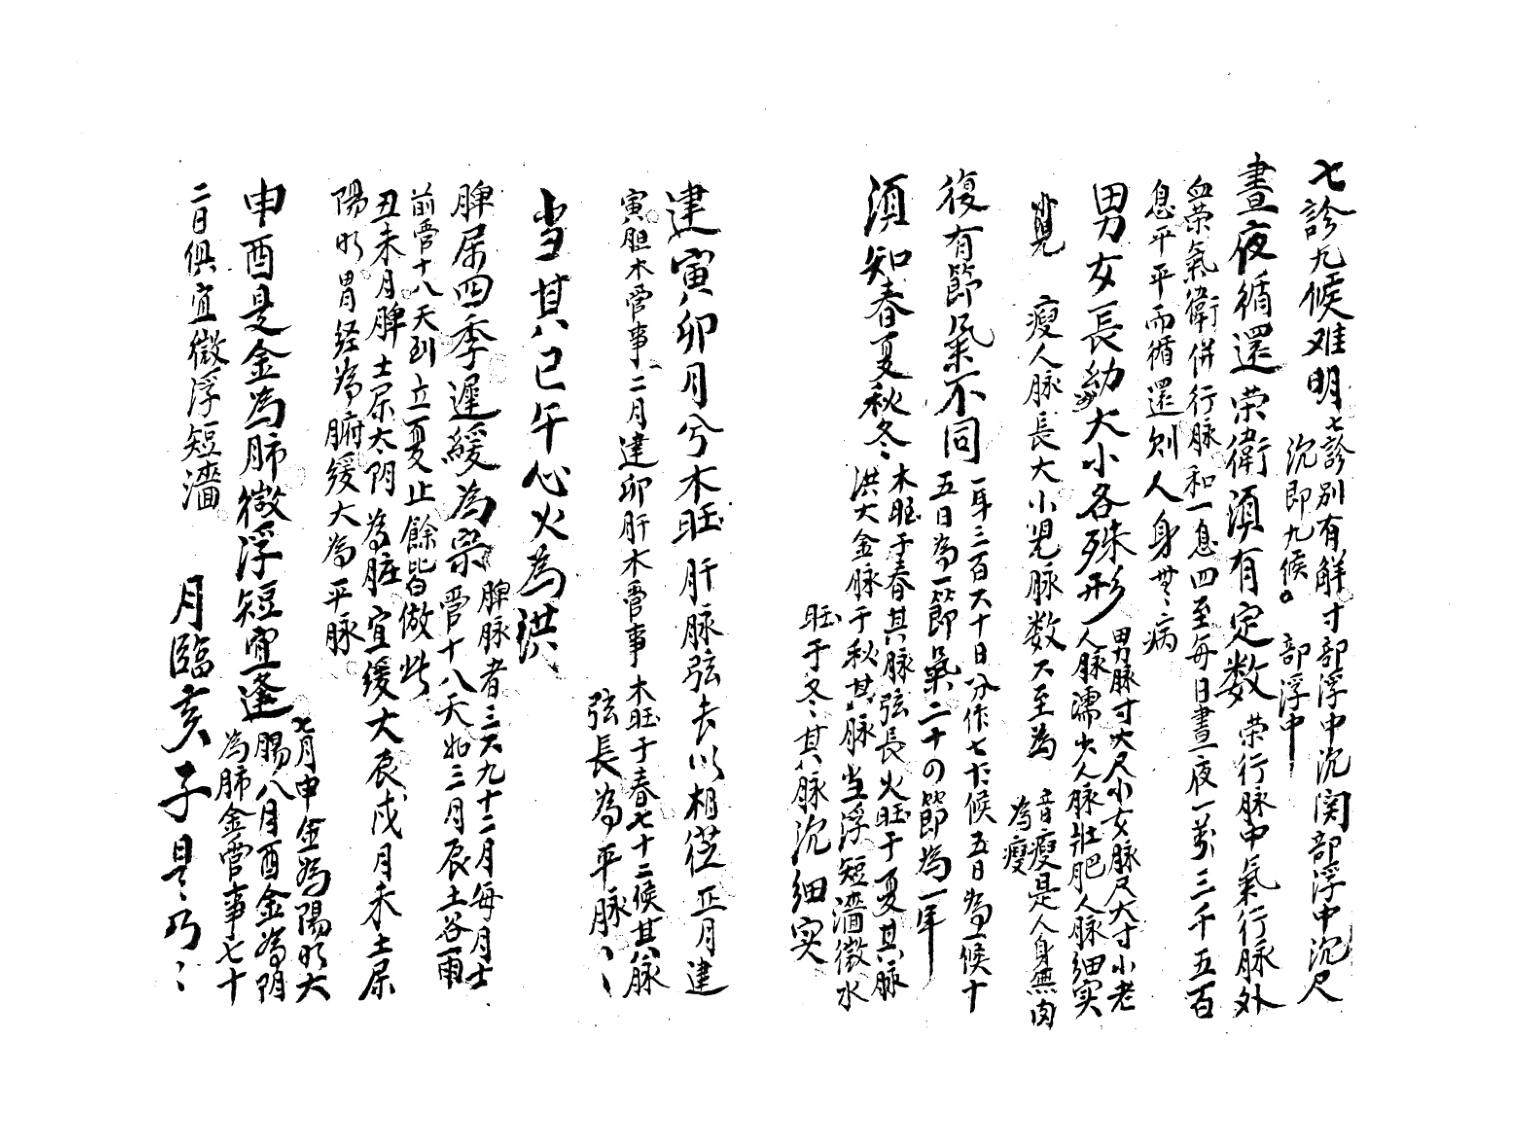 七診九候难明七診別有解寸部浮中沉関部浮中沉尺
沉即九候。部浮中
晝夜循還荣衛湏有定数荣行脉中氣行脉外
血荣氣衛併行脉和一息四至每日晝夜一萬三千五百
息平平而循還则人身無病
男女長幼大小各殊形男脉寸大尺小女脉尺大寸小老
人脉濡少人脉壮肥人脉细实
覓瘦人脉長大小児脉数六至為音瘦是人身無肉
為瘦
復有節氣不同一年三百六十日分作七十二候五日為一候十
五日為一節氣二十四節為一年
湏知春夏秋冬木旺于春其脉弦長火旺于夏其脉
洪大金脉于秋其脉当浮短濇微水
旺于冬其脉沉细实
建寅卯月兮木旺肝脉弦去以相從正月建
寅胆木管事二月建卯肝木管事木旺于春七十二候其脉
弦長為平脉
当其巳午心火為洪
脾属四季遲緩為
脾脉者三六九十二月每月士
管十八天如三月辰土谷雨
前管十八天到立夏止餘皆倣此
丑未月脾士属太阴為脏宜缓大辰戌月未土属
陽明胃经為腑缓大為平脉
申酉是金為肺微浮短宜逢七月申金為陽明大
腸八月酉金為阴
為肺金管事七十
二日俱宜微浮短濇
月臨亥子是乃